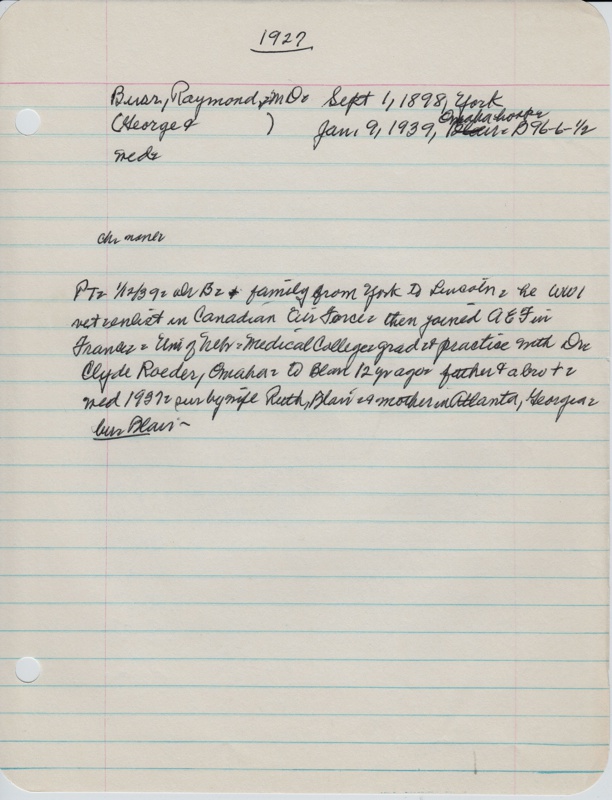 1927
Busr, Raymond, MD= Sept 1, 1898, York
Omaha hosp=
(George & ) Jan. 9, 1939, Blair= D 96-6-1/2
med=
ch= none=
PT= 1/12/39= Dr B= & family from York to Lincoln= he WW1
vet=enlist in Canadian Air Force= then joined AEF in
France= = Uni of Nebr=Medical College=grad= & practice with Dr
Clyde Roeder, Omaha= to Blair 12 yr ago= father & a bro +=
med 1937= sur by wife Ruth, Blair= & mother in Atlanta, Georgia=
bur Blair-